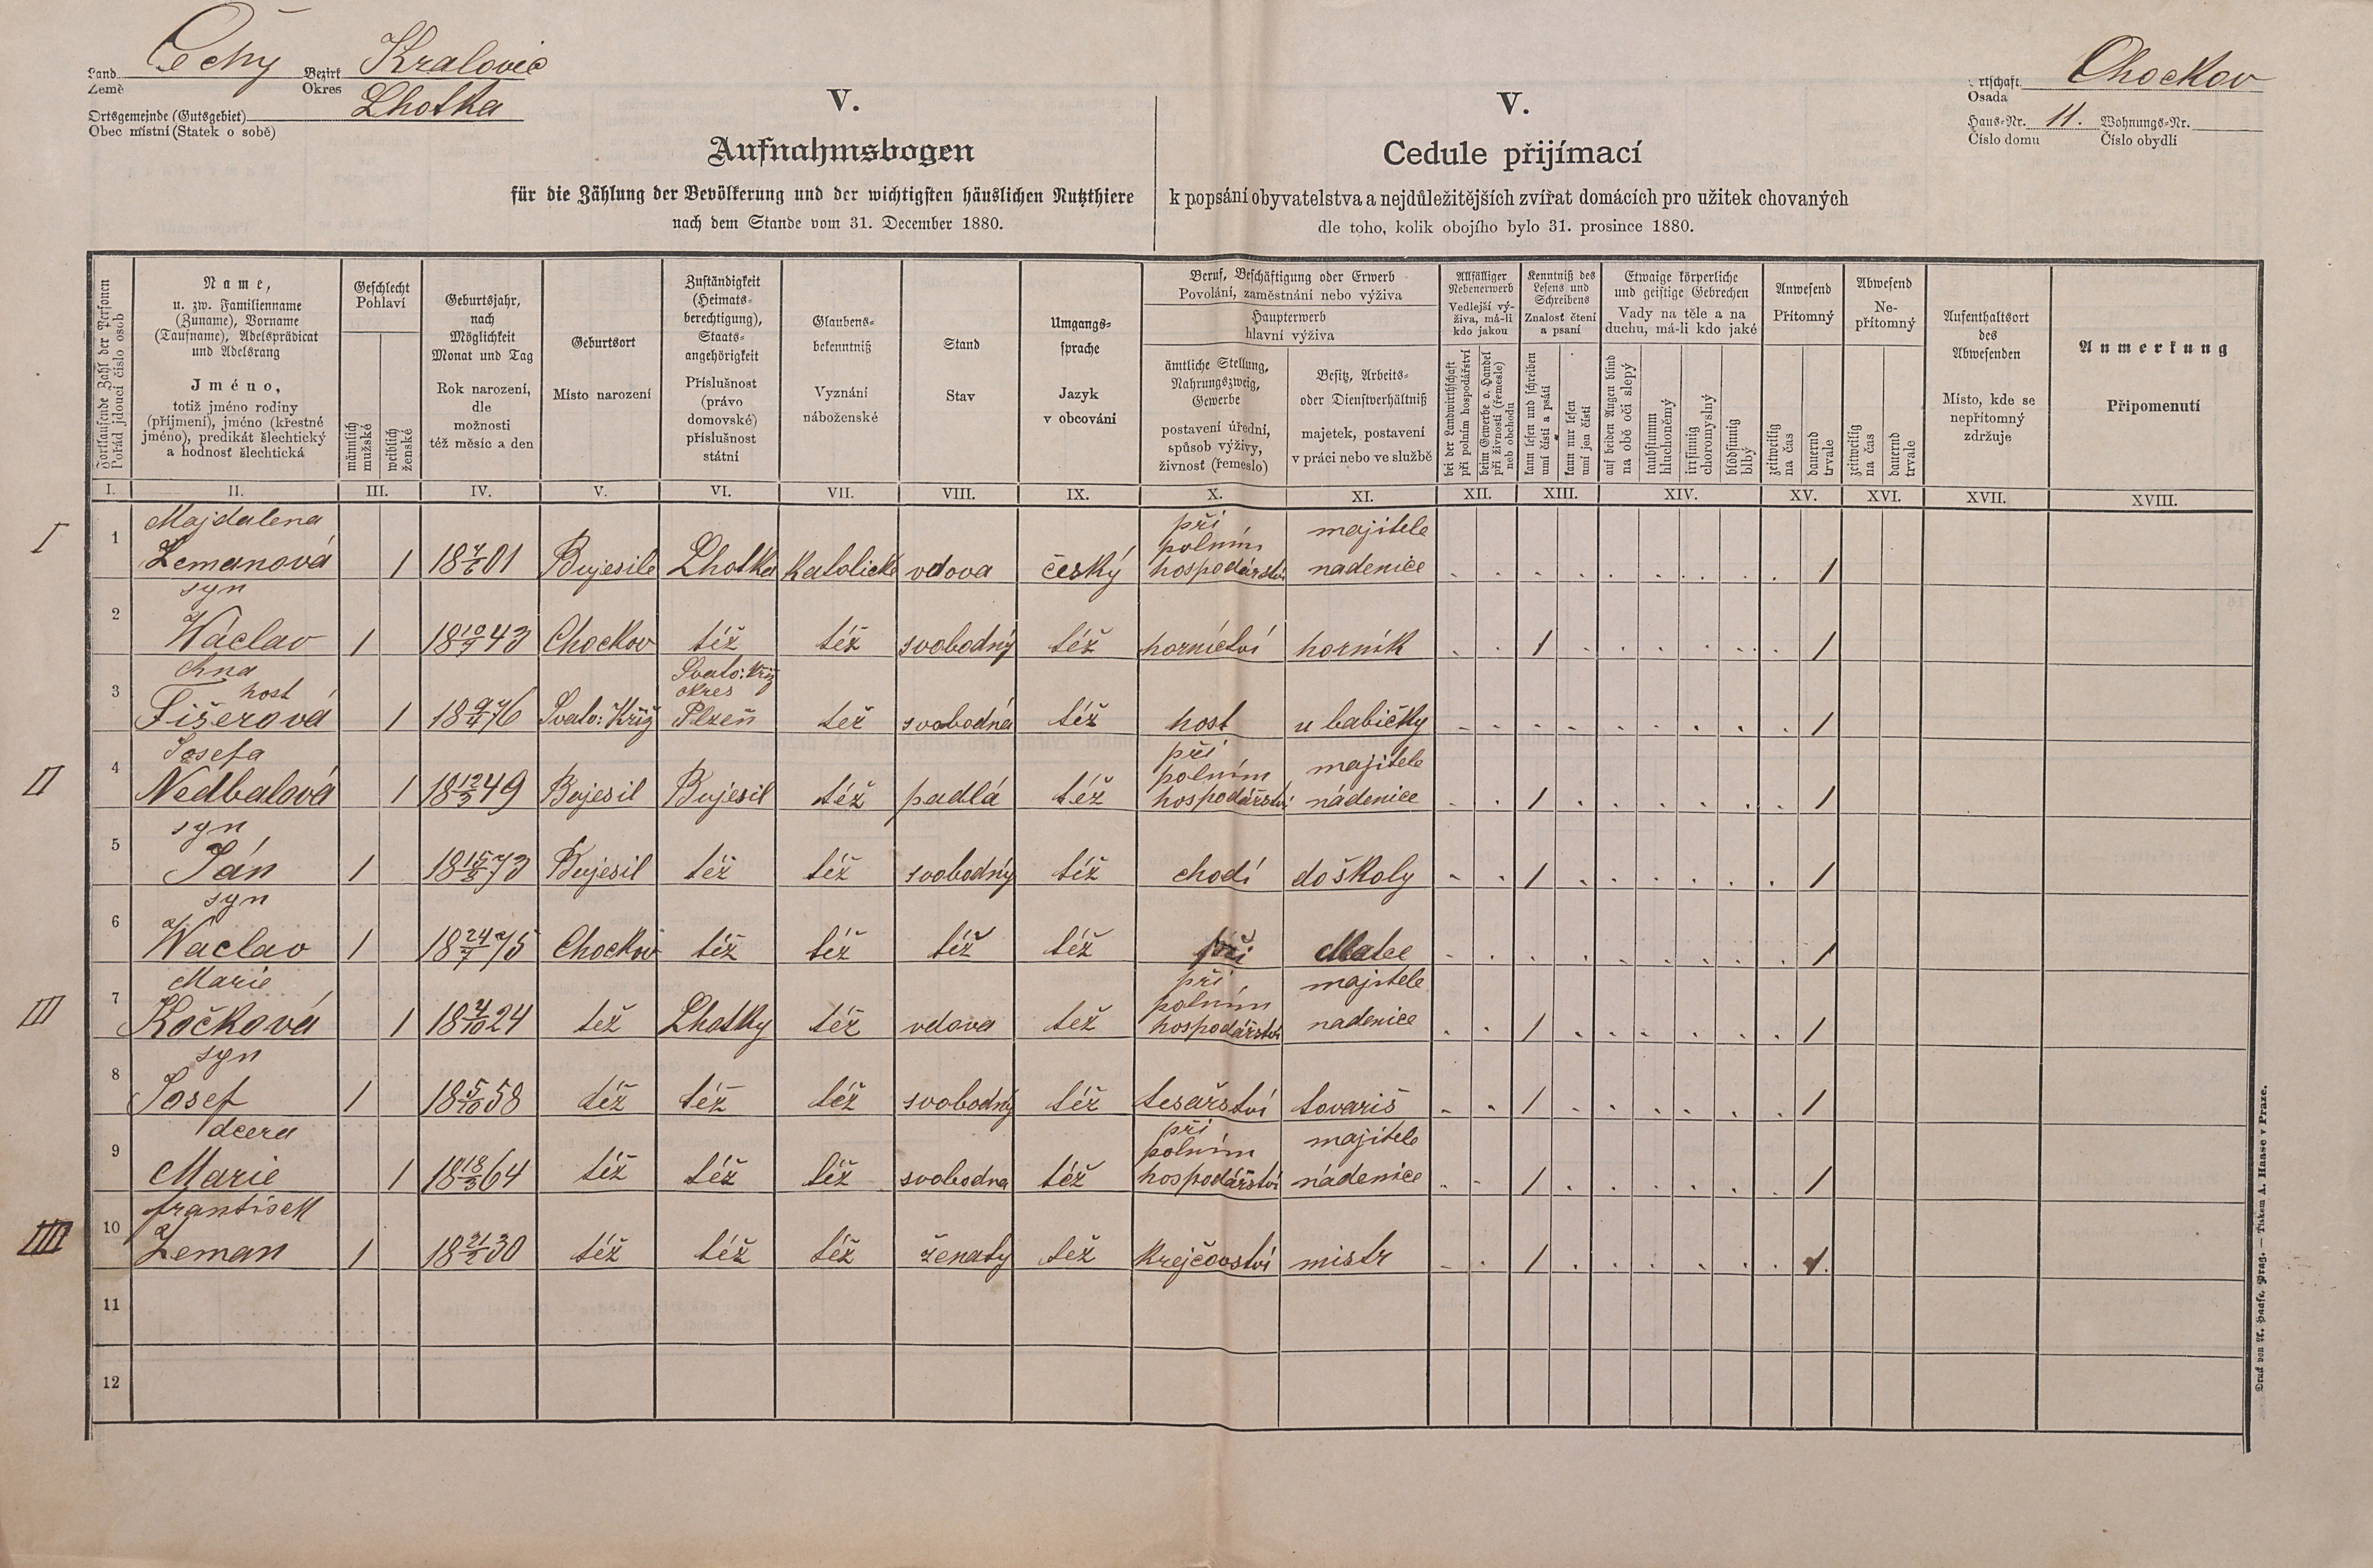 Land Čechy Bezirk Kralovic
Země Okres
Ortsgemeinde (Gutsgebiet) Lhotka
Obec místní (Statek o sobě)
V.
Aufnahmsbogen
für die Zählung der Bevölkerung und der wichtigsten häuslichen Nutzthiere
nach dem Stande vom 31. December 1880.
V.
Cedule přijímací
k popsání obyvatelstva a nejdůležitějších zvířat domácích pro užitek chovaných
dle toho, kolik obojího bylo 31. prosince 1880.
rtschaft Chockov
Osada
Haus-Nr. 11. Wohnungs-Nr.
Číslo domu Číslo obydlí
Fortlaufende Zahl der Personen
Pořád jdoucí číslo osob
Name,
u. zw. Familienname
(Zuname), Vorname
(Taufname), Adelsprädicat
und Adelsrang
Jméno,
totiž jméno rodiny
(příjmení), jméno (křestné
jméno), predikát šlechtický
a hodnosť šlechtická
Geschlecht
Pohlaví
männlich
mužské
weiblich
ženské
Geburtsjahr,
nach
Möglichkeit
Monat und Tag
Rok narození,
dle
možnosti
též měsíc a den
Geburtsort
Místo narození
Zuständigkeit
(Heimats-
berechtigung),
Staats-
angehörigkeit
Příslušnost
(právo
domovské)
příslušnost
státní
Glaubens-
bekenntniß
Vyznání
náboženské
Stand
Stav
Umgangs-
sprache
Jazyk
v obcování
Beruf, Beschäftigung oder Erwerb
Povolání, zaměstnání nebo výživa
Haupterwerb
hlavní výživa
ämtliche Stellung,
Nahrungszweig,
Gewerbe
postavení úřední,
spůsob výživy,
živnosť (řemeslo)
Besitz, Arbeits-
oder Dienstverhältniß
majetek, postavení
v práci nebo ve službě
Allfälliger
Nebenerwerb
Vedlejší vý-
živa, má-li
kdo jakou
bei der Landwirthschaft
při polním hospodářství
beim Gewerbe o. Handel
při živnosti (řemesle)
neb obchodu
Kenntniß des
Lesens und
Schreibens
Znalosť čtení
a psaní
kann lesen und schreiben
umí čísti a psáti
kann nur lesen
umí jen čísti
Etwaige körperliche
und geistige Gebrechen
Vady na těle a na
duchu, má-li kdo jaké
auf beiden Augen blind
na obě oči slepý
taubstumm
hluchoněmý
irrsinnig
choromyslný
blödsinnig
blbý
Anwesend
Přítomný
zeitweilig
na čas
dauernd
trvale
Abwesend
Ne-
přítomný
zeitweilig
na čas
dauernd
trvale
Aufenthaltsort
des
Abwesenden
Místo, kde se
nepřítomný
zdržuje
Anmerkung
Připomenutí
I. II. III. IV. V. VI. VII. VIII. IX. X. XI. XII. XIII. XIV. XV. XVI. XVII. XVIII.
I
Majdalena při majitele
polním
1 Zemanová 1 18 01 Bujesile Lhotka katolické vdova český hospodářství nadenice 1
syn
2 Václav 1 18 10/9 43 Chockov též též svobodný též hornictví horník 1 1
Ana Svato: Kříž
host okres
3 Fišerová 1 18 9/4 76 Svato: Kříž Plzeň též svobodná též host u babičky 1
II
Josefa při majitele
polním
4 Nedbalová 1 18 12/3 49 Bujesil Bujesil též padlá též hospodářství nádenice 1 1
syn
5 Ján 1 18 73 Bujesil též též svobodný též chodí do školy 1 1
syn
6 Václav 1 18 24/7 75 Chockov též též též též při Matce 1
III
Marie při majitele
polním
7 Kočková 1 18 4/10 24 též Lhotky též vdova též hospodářství nadenice 1 1
syn
8 Josef 1 18 5/10 58 též též též svobodný též tesařství tovariš 1 1
dcera při majitele
polním
9 Marie 1 18 18/3 64 též též též svobodna též hospodářství nádenice 1 1
IIII
František
10 Zeman 1 18 21/2 30 též též též ženatý též krejčovství mistr 1 1
11
12
Druck von A. Haase, Prag. — Tiskem A. Haase v Praze.